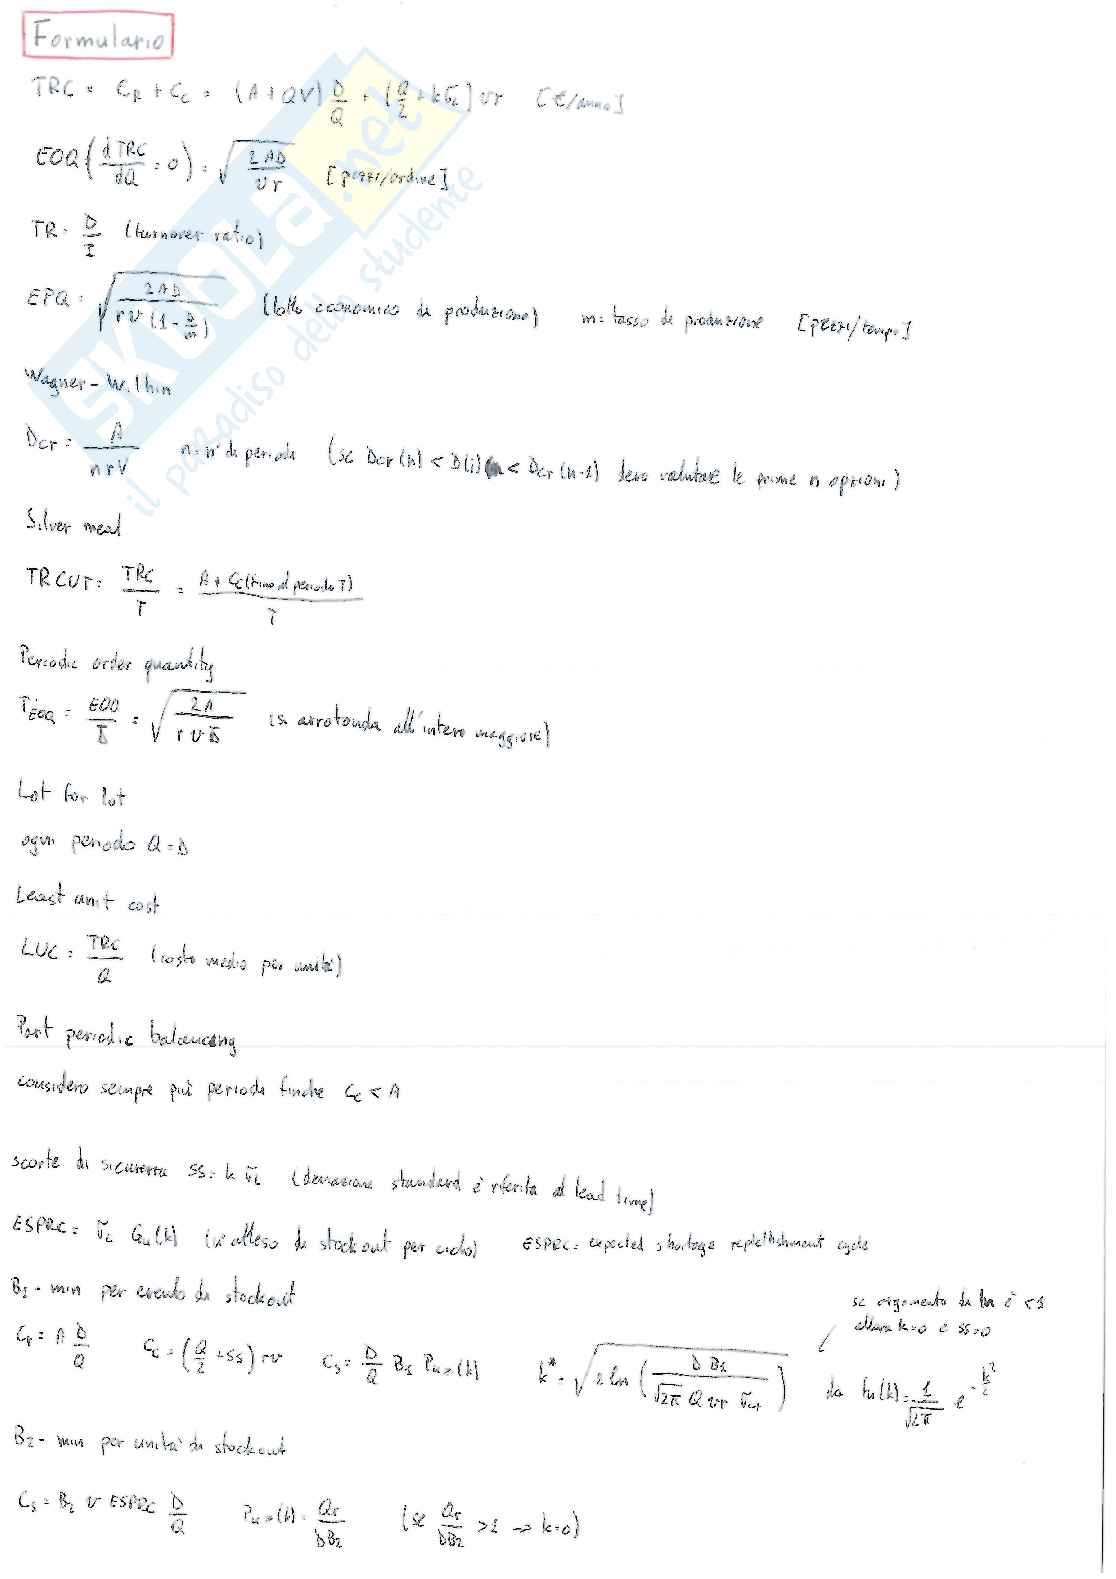 Formulario
TRC = CR + CC = (A + QV) D/Q + (Q/2 + kσL) vr [€/anno]
EOQ (dTRC/dQ = 0) = √(2AD/vr) [pezzi/ordine]
TR = D/I (turnover ratio)
EPQ = √(2AD/(rv(1 - D/m))) (lotto economico di produzione) m = tasso di produzione [pezzi/tempo]
Wagner - Within
Dcr = A/(nrV) n = n° di periodi (se Dcr(n) < D(i) < Dcr(n-1) devo valutare le prime n opzioni)
Silver meal
TRCUT = TRC/T = (A + Cc (fino al periodo T))/T
Periodic order quantity
TEOQ = EOQ/D̄ = √(2A/(rvD̄)) (si arrotonda all'intero maggiore)
Lot for lot
ogni periodo Q = D
Least unit cost
LUC = TRC/Q (costo medio per unità)
Part periodic balancing
considero sempre più periodi finche Cc < A
scorte di sicurezza SS = k σL (deviazione standard è riferita al lead time)
ESPRC = σL Gu(k) (n° atteso di stockout per ciclo) ESPRC = expected shortage replethishment cycle
B1 - min per evento di stockout
se argomento di ln è < 1
allora k=0 e SS=0
Cr = A D/Q Cc = (Q/2 + SS) rv Cs = D/Q B1 Pu≥(k) k* = √(2 ln (DB1/(√2π Q vr σL))) da fu(k) = 1/√2π e^(-k²/2)
B2 - min per unità di stockout
Cs = B2 v ESPRC D/Q Pu≥(k) = Qr/DB2 (se Qr/DB2 > 1 → k=0)
SKUOLA.net
il paradiso dello studente